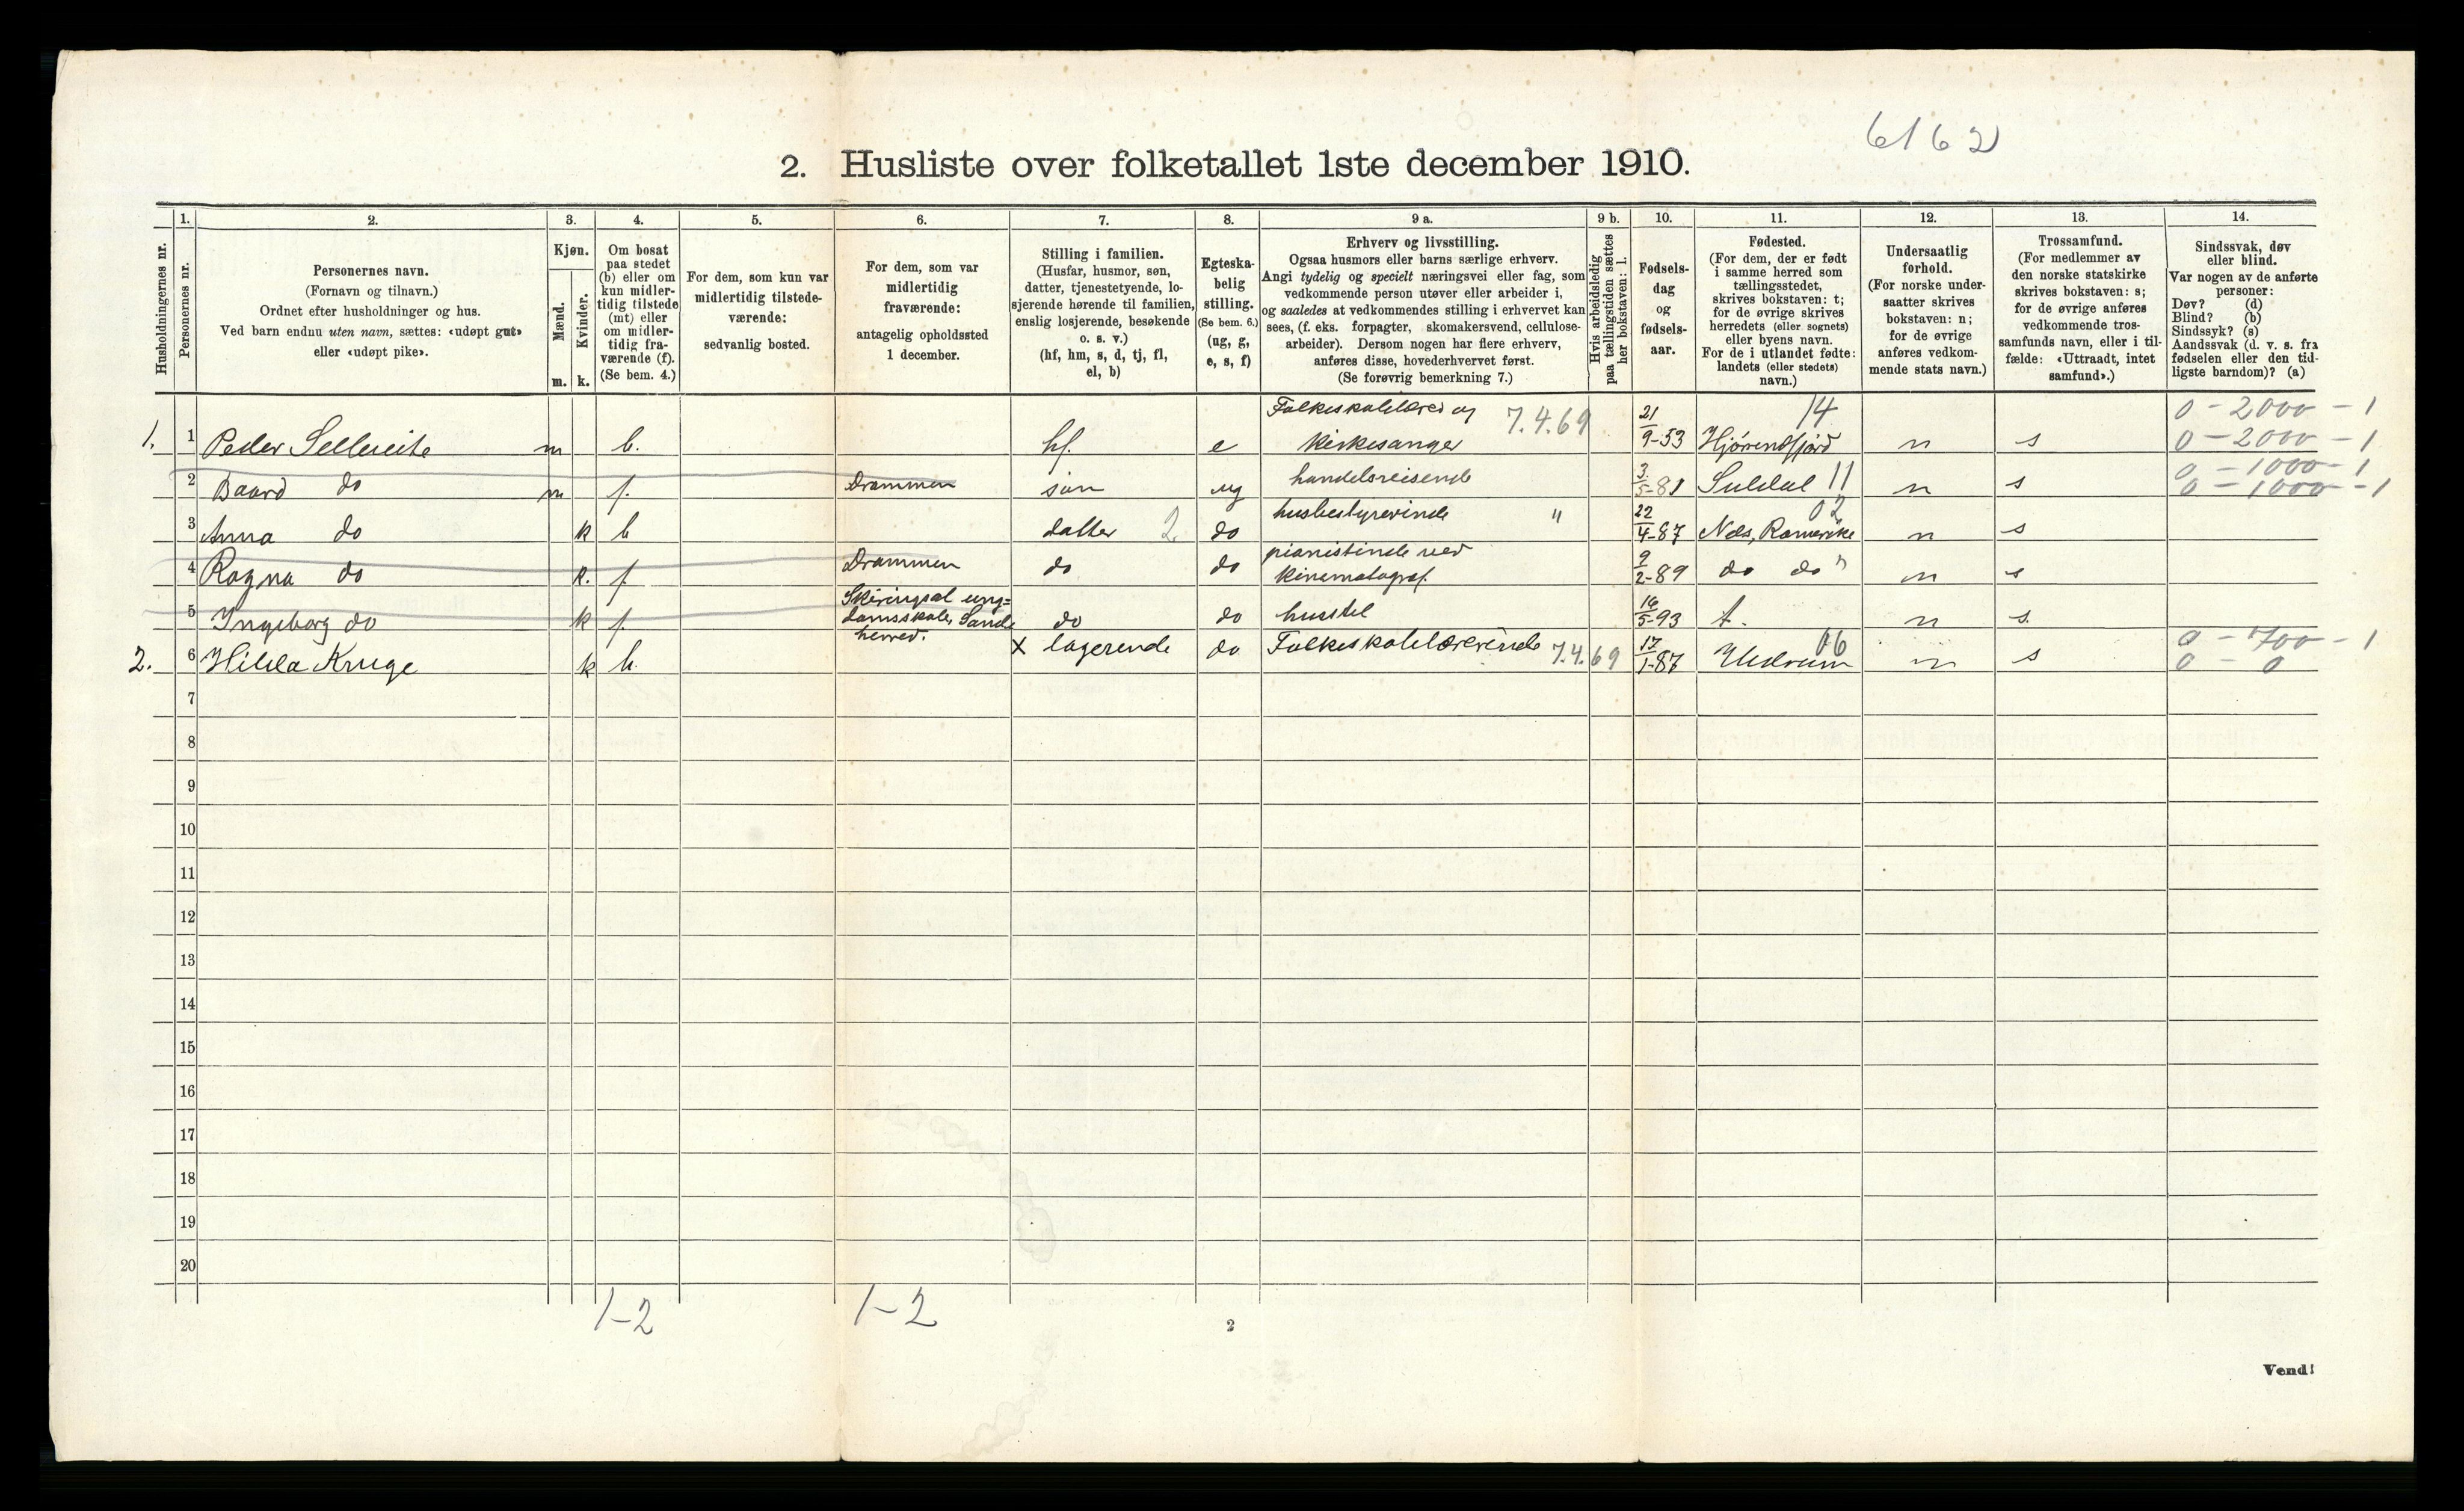 6162
2. Husliste over folketallet 1ste december 1910.
Husholdningernes nr.
1.
Personernes nr.
2.
Personernes navn.
(Fornavn og tilnavn.)
Ordnet efter husholdninger og hus.
Ved barn endnu uten navn, sættes: «udøpt gut»
eller «udøpt pike».
3.
Kjøn.
Mænd.
Kvinder.
m. k.
4.
Om bosat
paa stedet
(b) eller om
kun midler-
tidig tilstede
(mt) eller
om midler-
tidig fra-
værende (f).
(Se bem. 4.)
5.
For dem, som kun var
midlertidig tilstede-
værende:
sedvanlig bosted.
6.
For dem, som var
midlertidig
fraværende:
antagelig opholdssted
1 december.
7.
Stilling i familien.
(Husfar, husmor, søn,
datter, tjenestetyende, lo-
sjerende hørende til familien,
enslig losjerende, besøkende
o. s. v.)
(hf, hm, s, d, tj, fl,
el, b)
8.
Egteska-
belig
stilling.
(Se bem. 6.)
(ug, g,
e, s, f)
9 a.
Erhverv og livsstilling.
Ogsaa husmors eller barns særlige erhverv.
Angi tydelig og specielt næringsvei eller fag, som
vedkommende person utøver eller arbeider i,
og saaledes at vedkommendes stilling i erhvervet kan
sees, (f. eks. forpagter, skomakersvend, cellulose-
arbeider). Dersom nogen har flere erhverv,
anføres disse, hovederhvervet først.
(Se forøvrig bemerkning 7.)
9 b.
Hvis arbeidsledig
paa tællingstiden sættes
her bokstaven: l.
10.
Fødsels-
dag
og
fødsels-
aar.
11.
Fødested.
(For dem, der er født
i samme herred som
tællingsstedet,
skrives bokstaven: t;
for de øvrige skrives
herredets (eller sognets)
eller byens navn.
For de i utlandet fødte:
landets (eller stedets)
navn.)
12.
Undersaatlig
forhold.
(For norske under-
saatter skrives
bokstaven: n;
for de øvrige
anføres vedkom-
mende stats navn.)
13.
Trossamfund.
(For medlemmer av
den norske statskirke
skrives bokstaven: s;
for de øvrige anføres
vedkommende tros-
samfunds navn, eller i til-
fælde: «Uttraadt, intet
samfund».)
14.
Sindssvak, døv
eller blind.
Var nogen av de anførte
personer:
Døv? (d)
Blind? (b)
Sindssyk? (s)
Aandssvak (d. v. s. fra
fødselen eller den tid-
ligste barndom)? (a)
Folkeskolelærer og 7.4.69 21 14 0 - 2000 - 1
1. 1 Peder Sellereite m b. hf. e kirkesanger 9-53 Hjørendfjord n s 0 - 2000 - 1
0 - 1000 - 1
2 Baard do m f. Drammen søn ug handelsreisende 3/5-81 Suldal 11 n s 0 - 1000 - 1
3 Anna do k b datter 2. do husbestyrerinde " 22/4-87 Næs, Romerike 02 n s
4 Ragna do k. f Drammen do do pianistinde ved
kinematograf. 9/2-89 do do " n s
5 Ingeborg do k f. Skiringsal ung=
domsskole, Sande
herred. do do husstel 16/5-93 t. n s.
2. 6 Hilda Kruge k b. x logerende do Folkeskolelærerinde 7.4.69 17/1-87 Hedrum 06 n s 0 - 700 - 1
0 - 0
7
8
9
10
11
12
13
14
15
16
17
18
19
20
1-2 1-2
2
Vend!